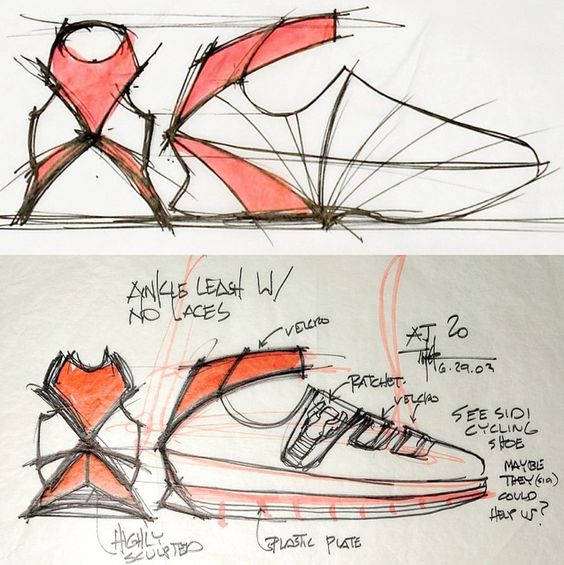 ANKLE LEASH W/
NO LACES
VELCRO
AJ 20
6.29.03
RATCHET
VELCRO
SEE SIDI
CYCLING
SHOE
MAYBE
THEY
COULD
HELP US?
HIGHLY
SCULPTED
PLASTIC PLATE